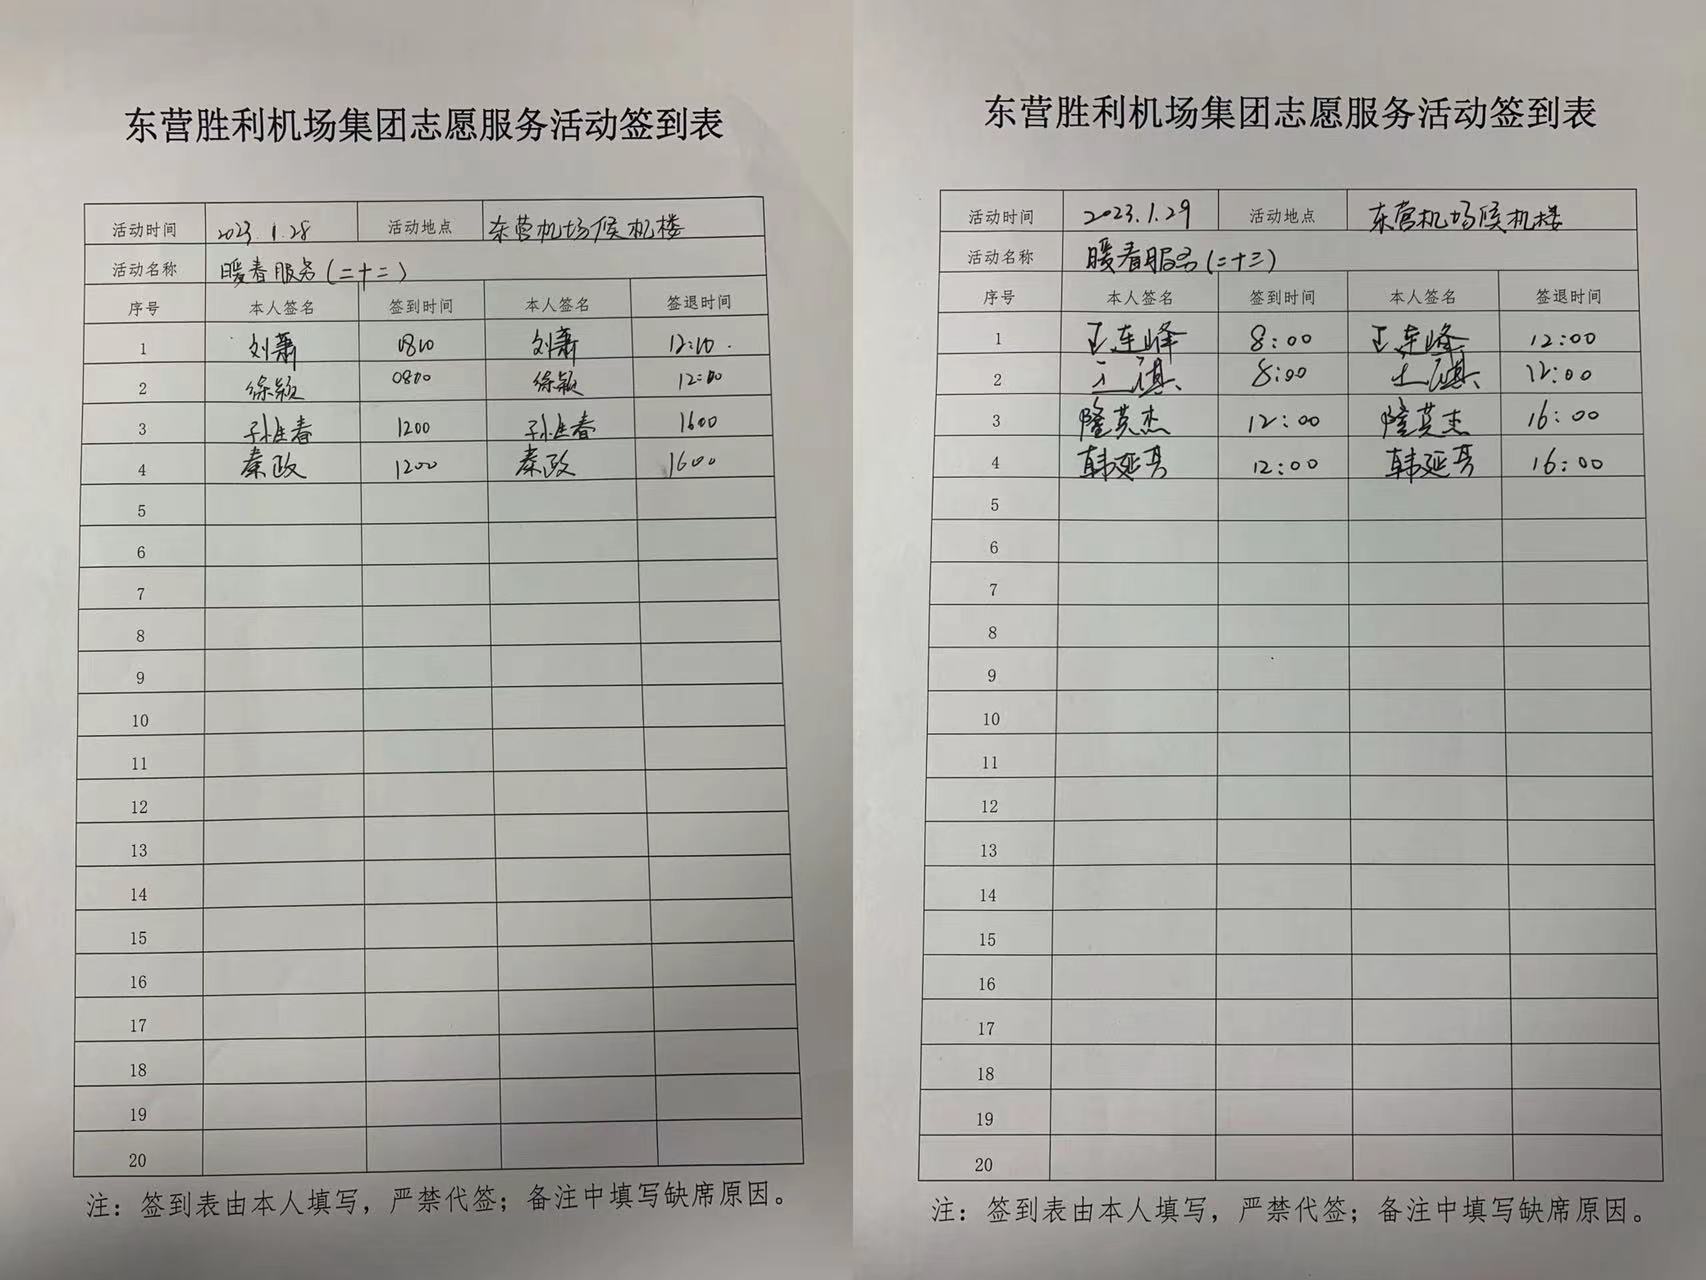 东营胜利机场集团志愿服务活动签到表
活动时间 2023.1.28 活动地点 东营机场候机楼
活动名称 暖春服务(二十二)
序号 本人签名 签到时间 本人签名 签退时间
1 刘萧 0810 刘萧 12:10.
2 徐颖 0810 徐颖 12:00
3 孙生春 1200 孙生春 1600
4 秦政 1200 秦政 1600
5
6
7
8
9
10
11
12
13
14
15
16
17
18
19
20
注：签到表由本人填写，严禁代签；备注中填写缺席原因。
东营胜利机场集团志愿服务活动签到表
活动时间 2023.1.29 活动地点 东营机场候机楼
活动名称 暖春服务(二十三)
序号 本人签名 签到时间 本人签名 签退时间
1 王连峰 8:00 王连峰 12:00
2 8:00 12:00
3 隆英杰 12:00 隆英杰 16:00
4 韩延亮 12:00 韩延亮 16:00
5
6
7
8
9
10
11
12
13
14
15
16
17
18
19
20
注：签到表由本人填写，严禁代签；备注中填写缺席原因。